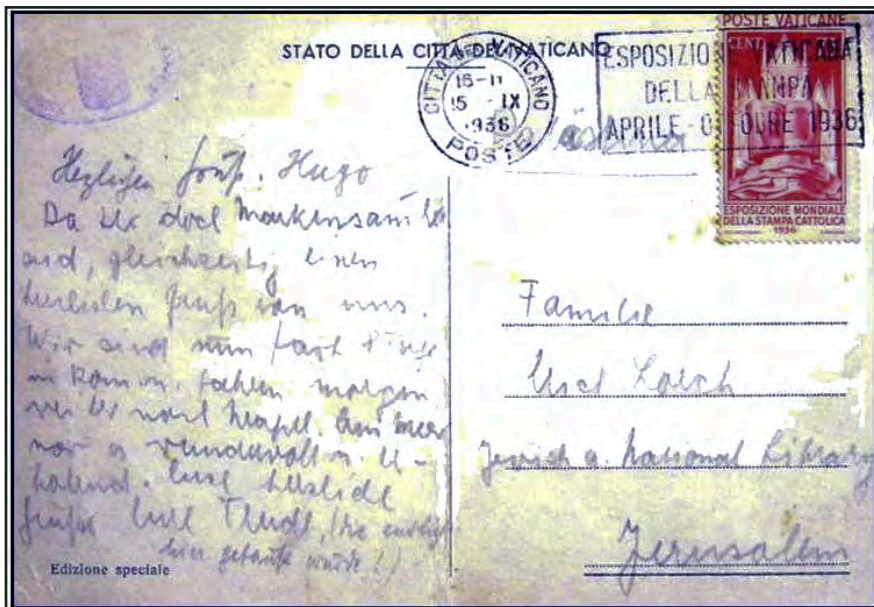 STATO DELLA CITTÀ DEL VATICANO
CITTÀ DEL VATICANO
16-17
15 IX
1936
POSTE
ESPOSIZIONE VATICANA
DELLA STAMPA
APRILE-OTTOBRE 1936
POSTE VATICANE
CENT.
ESPOSIZIONE MONDIALE
DELLA STAMPA CATTOLICA
1936
Herzlichen Gruß. Hugo
Da Ihr doch Markensammler
seid, gleichzeitig einen
herzlichen Gruß von uns.
Wir sind nun fast Tage
in Rom u. fahren morgen
weiter nach Neapel. Am Meer
war es wundervoll u. er-
holend. herzliche
Grüße Trude, (die endlich
hier getauft wurde!)
Edizione speciale
Familie
Jewish a. National Library
Jerusalem